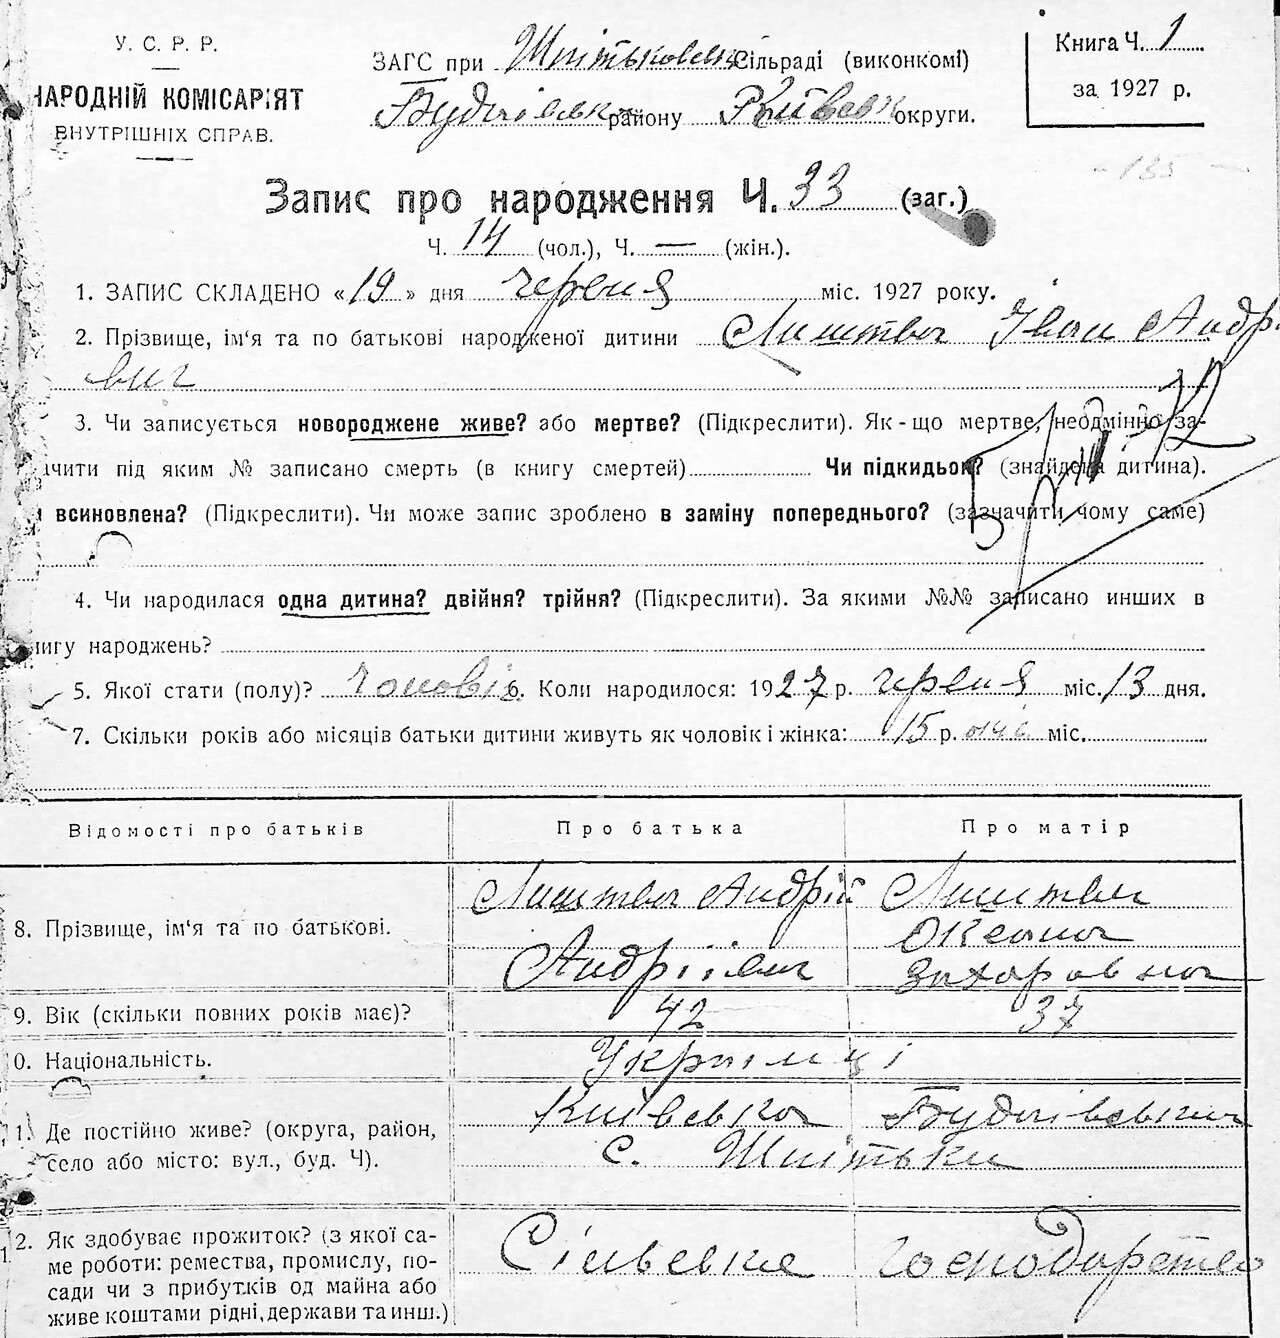 У. С. Р. Р.
НАРОДНІЙ КОМІСАРІЯТ
ВНУТРІШНІХ СПРАВ.
ЗАГС при Шпітьковськ сільраді (виконкомі)
Будаївськ району Київськ округи.
Книга Ч. 1
за 1927 р.
135
Запис про народження Ч. 33 (заг.)
Ч. 14 (чол.), Ч. — (жін.).
1. ЗАПИС СКЛАДЕНО «19» дня червня міс. 1927 року.
2. Прізвище, ім‘я та по батькові народженої дитини Лиштва Іван Андрі
вич
3. Чи записується новороджене живе? або мертве? (Підкреслити). Як-що мертве, неодмінно за-
ачити під яким № записано смерть (в книгу смертей) Чи підкидьок? (знайдена дитина).
и всиновлена? (Підкреслити). Чи може запис зроблено в заміну попереднього? (зазначити чому саме)
4. Чи народилася одна дитина? двійня? трійня? (Підкреслити). За якими №№ записано инших в
нигу народжень?
5. Якої стати (полу)? чоловік 6. Коли народилося: 1927 р. червня міс. 13 дня.
7. Скільки років або місяців батьки дитини живуть як чоловік і жінка: 15 р. міс.
Відомості про батьків Про батька Про матір
8. Прізвище, ім‘я та по батькові. Лиштва Андрій Андріївич Лиштва Оксана Захаровна
9. Вік (скільки повних років має)? 42 37
0. Національність. Українці
11. Де постійно живе? (округа, район, Київська Будаївська
село або місто: вул., буд. Ч). с. Шпітьки
12. Як здобуває прожиток? (з якої са- Сільське господарство
ме роботи: ремества, промислу, по-
сади чи з прибутків од майна або
живе коштами рідні, держави та инш.)